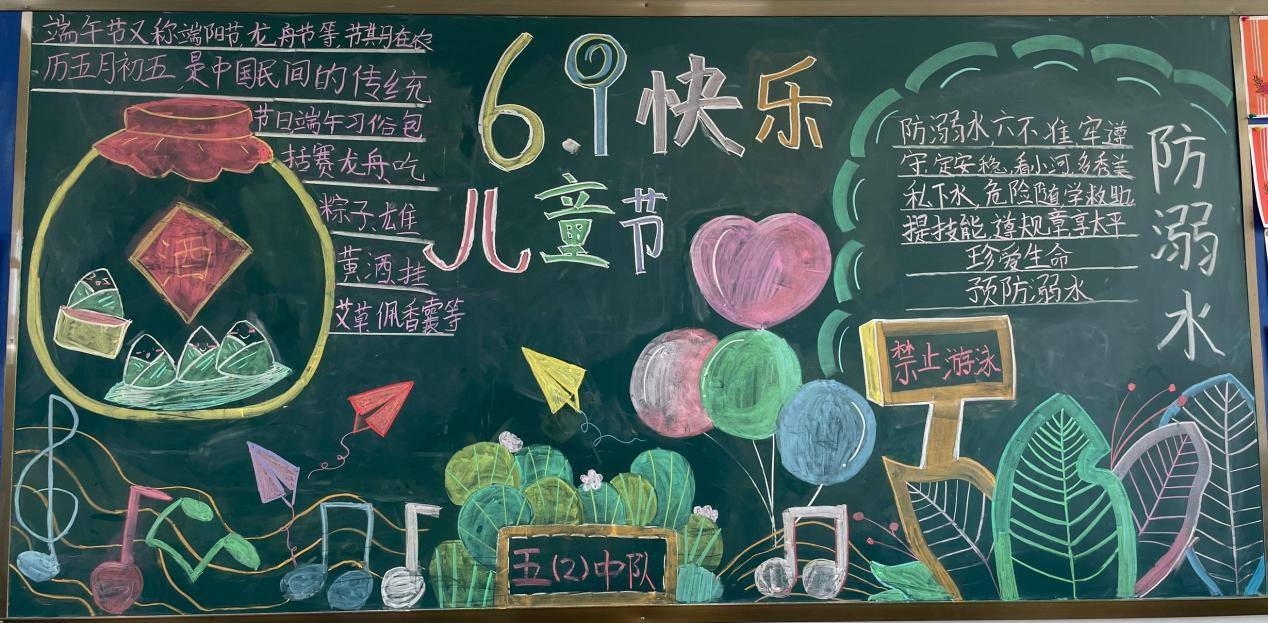 端午节又称端阳节,龙舟节等,节其月在农
历五月初五,是中国民间的传统
节日端午习俗包
括赛龙舟,吃
粽子,雄
黄酒,挂
艾草,佩香囊等
酒
6.1快乐
儿童节
防溺水六不准,牢遵
守,定安稳,看小河,多秀美
私下水,危险随,学救助,
提技能,遵规章享太平
珍爱生命
预防溺水
防溺水
禁止游泳
五(2)中队